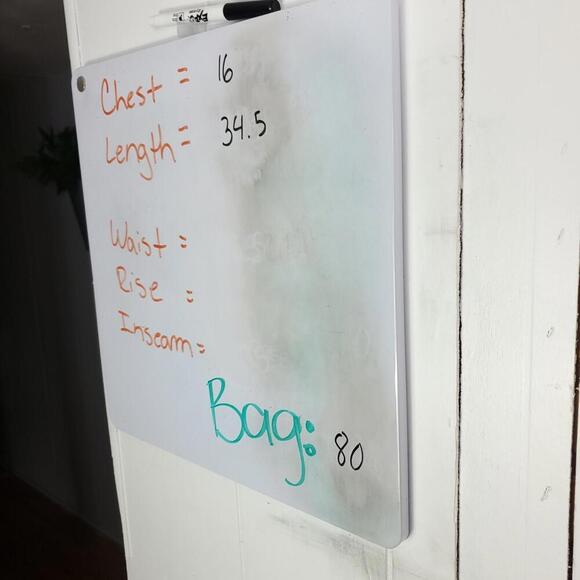 Chest = 16
Length = 34.5
Waist =
Rise =
Inseam =
Bag: 80